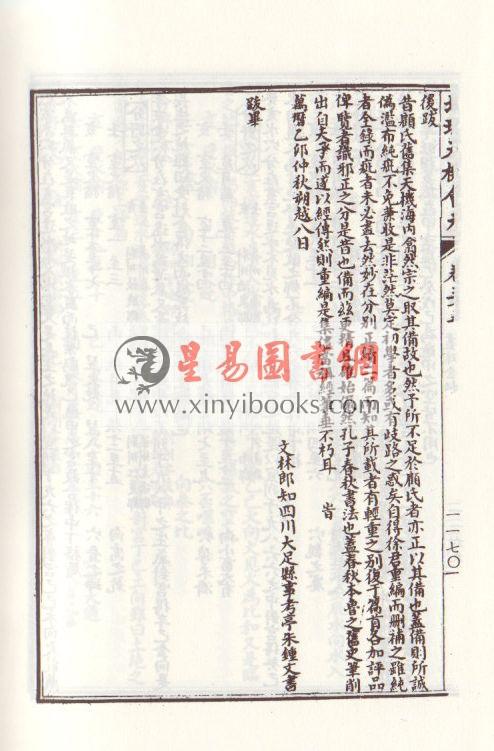 地理天機會元
卷三十
一一七〇
後跋
昔顧氏舊集天機海內翕然宗之取其備故也然予所不足於顧氏者亦正以其備也蓋備則所誠
偽濫布純疵不免兼收是非茫然莫定初學者多或有歧路之惑矣自得徐君重編而刪補之雖純
者全錄而疵者未必盡去然妙在分別正 篇 知其所載者有輕重之別復于篇首各加評品
俾賢者識邪正之分是昔也備而茲更 始 然孔子春秋書法也蓋春秋本魯之舊史筆削
出自夫子而遂以經傳然則重編是集 當 經 並不朽耳 旹
萬曆乙卯仲秋朔越八日
文林郎知四川大足縣事考亭朱鍾文書
跋畢
星易圖書網
www.xinyibooks.com